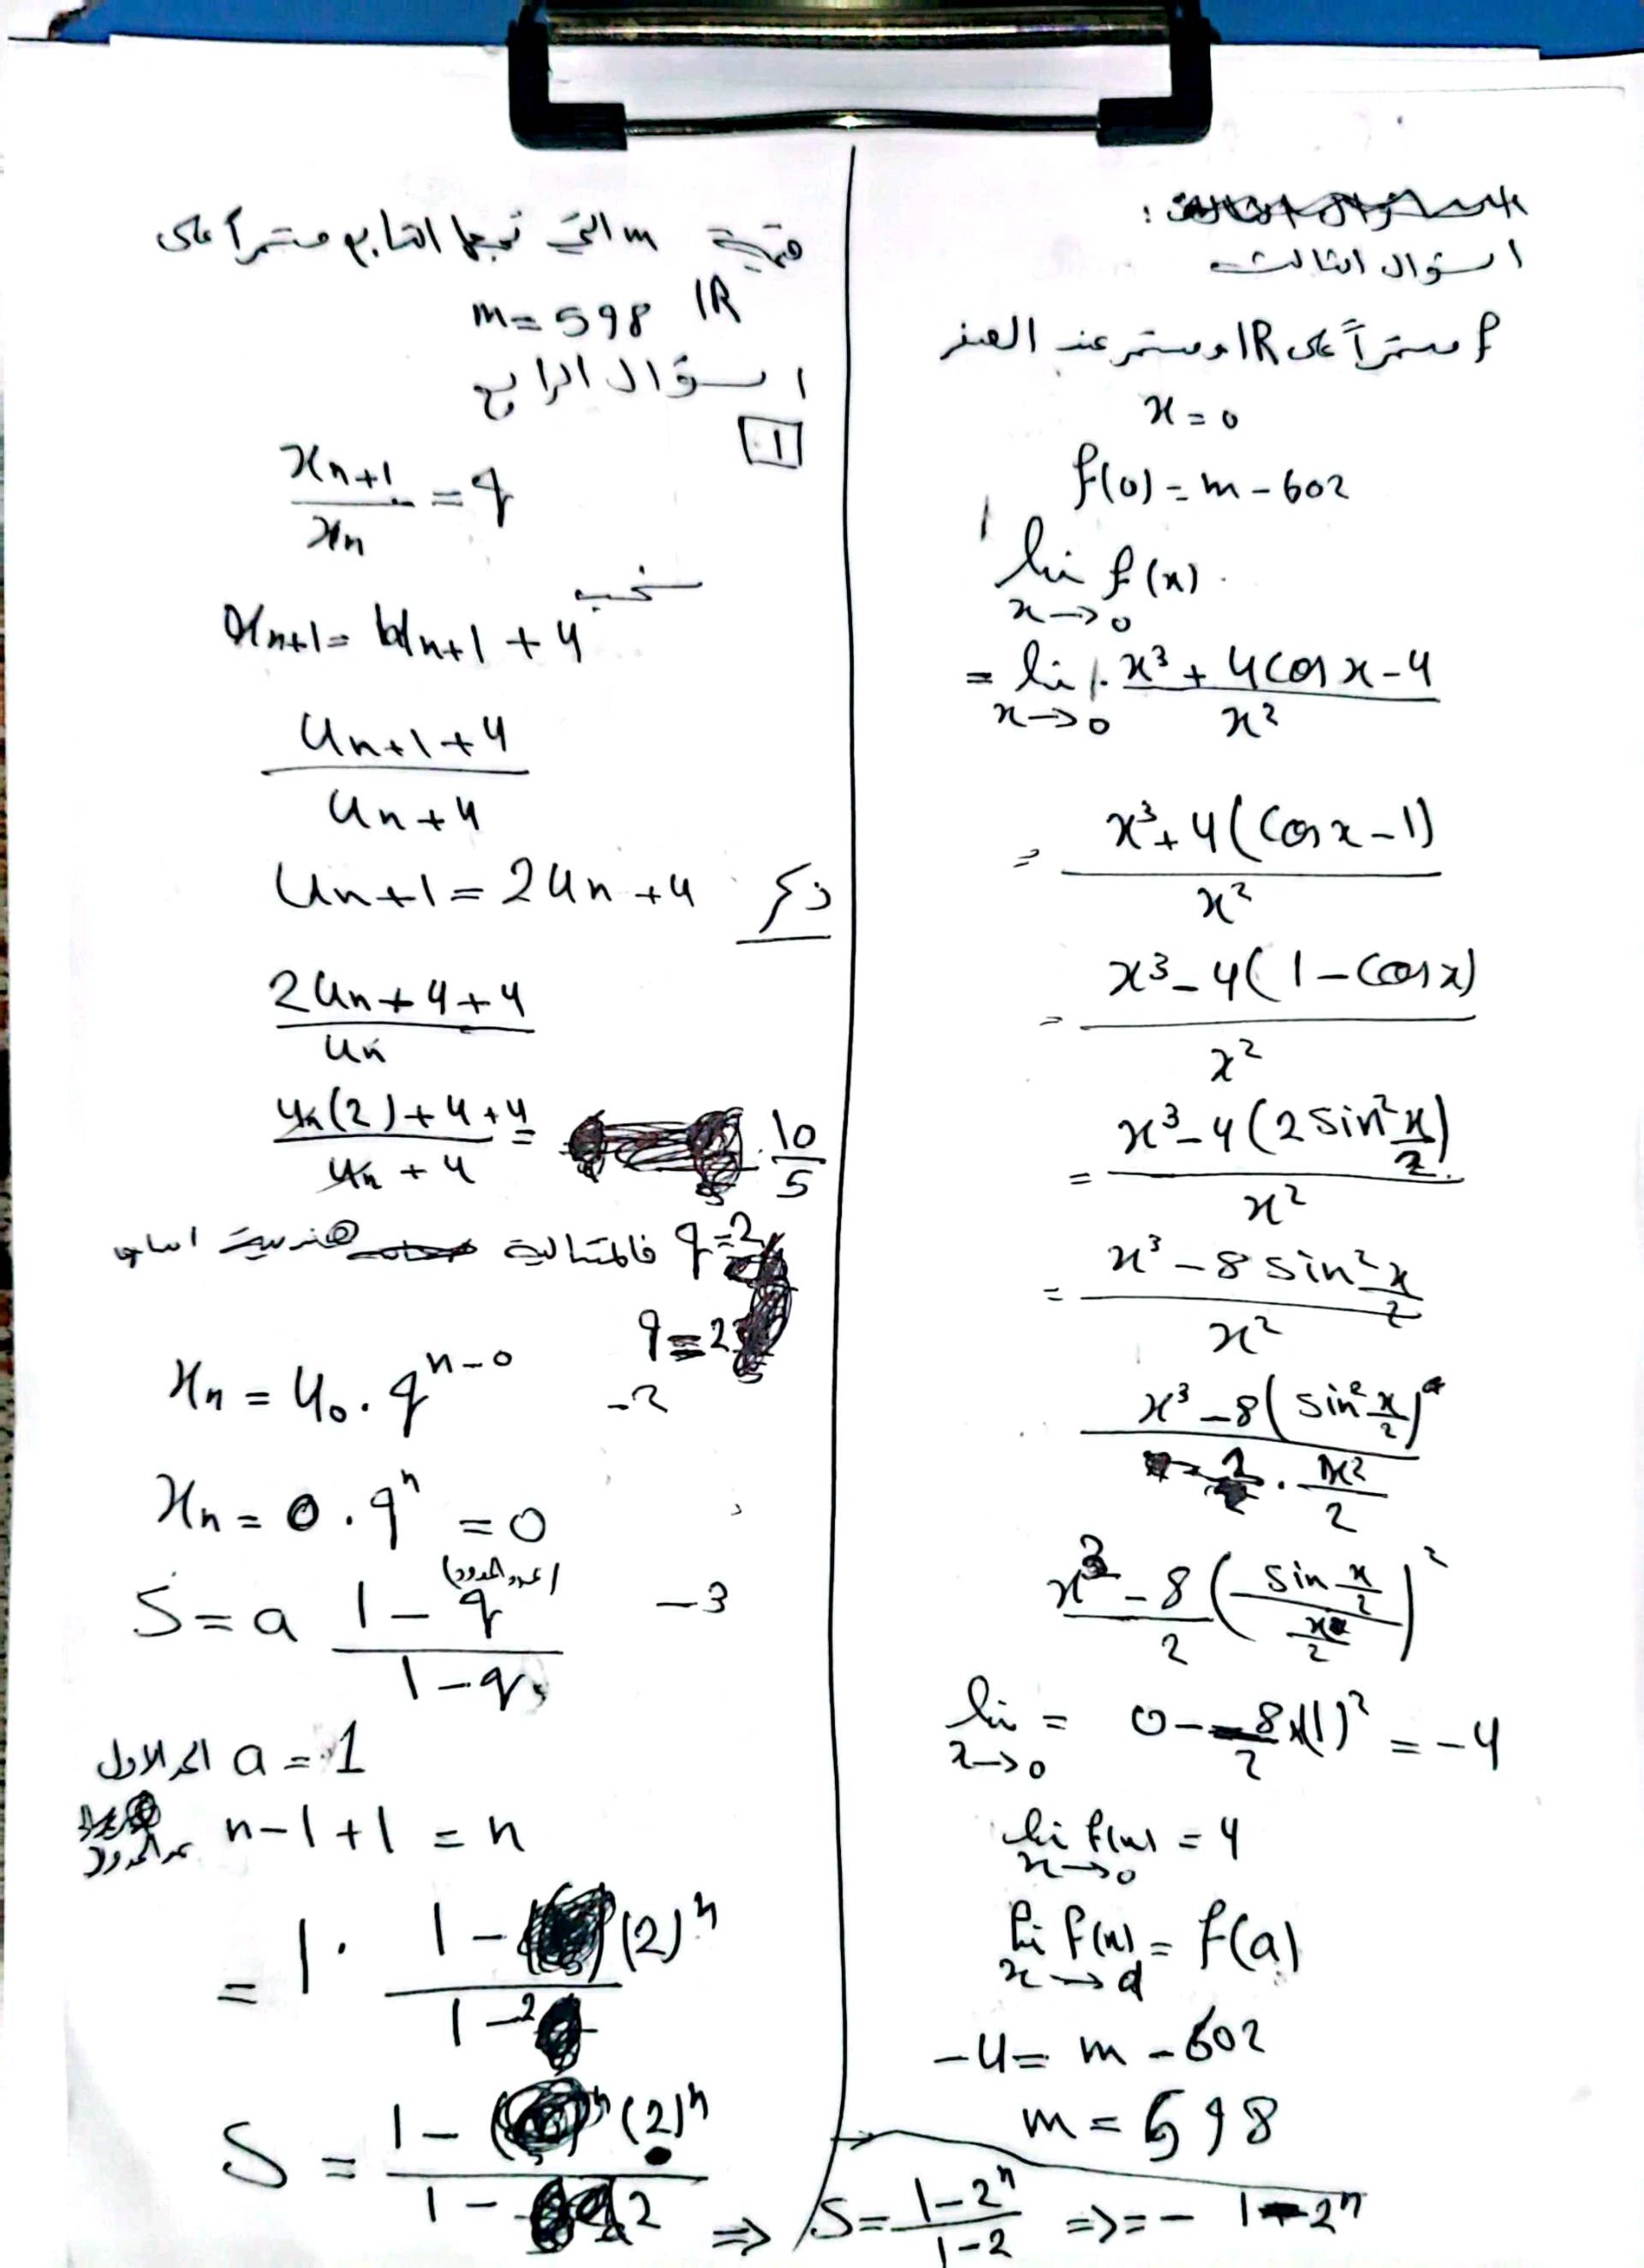 السؤال الثالث
f مستمراً على IR ومستمر عند الصفر
x = 0
f(0) = m - 602
lim f(x)
x→0
= lim x³ + 4cos x - 4 / x²
x→0
= x³ + 4(cos x - 1) / x²
= x³ - 4(1 - cos x) / x²
= x³ - 4(2 sin² x/2) / x²
= x³ - 8 sin² x/2 / x²
x³ - 8(sin² x/2) / . x²/2
x³ - 8 / 2 (sin x/2 / x/2)²
lim = 0 - 8/2 x(1)² = -4
x→0
lim f(x) = 4
x→0
lim f(x) = f(a)
x→a
-4 = m - 602
m = 598
قيمة m التي تجعل التابع مستمراً على
IR
m = 598
السؤال الرابع
1
xn+1 / xn = q
نحسب
xn+1 = un+1 + 4
un+1 + 4 / un + 4
ذكر un+1 = 2un + 4
2un + 4 + 4 / un
un(2) + 4 + 4 / un + 4 = 10/5
q = 2 فالمتتالية هندسية اساسها
q = 2
-2 xn = u0 . q^n-0
xn = 0 . q^n = 0
-3 S = a 1 - q^(عدد الحدود) / 1 - q
الحد الاول a = 1
عدد الحدود n - 1 + 1 = n
= 1 . 1 - (2)^n / 1 - 2
S = 1 - (2)^n / 1 - 2
=> S = 1 - 2^n / 1 - 2 => = - 1 - 2^n